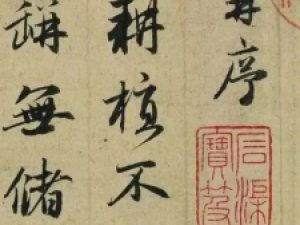 并序
耕植不
缾無儲
石渠
寶笈